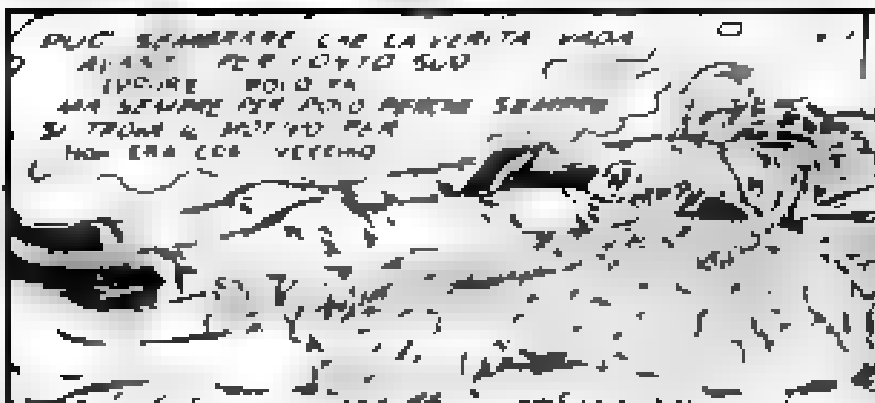 PUO' SEMBRARE CHE LA VERITA' VADA
AVANTI PER CONTO SUO
OPPURE
MA SEMPRE PER POCO PERCHE SEMPRE
SI TROVA IL MOTIVO PER
NON ERA COSI VECCHIO